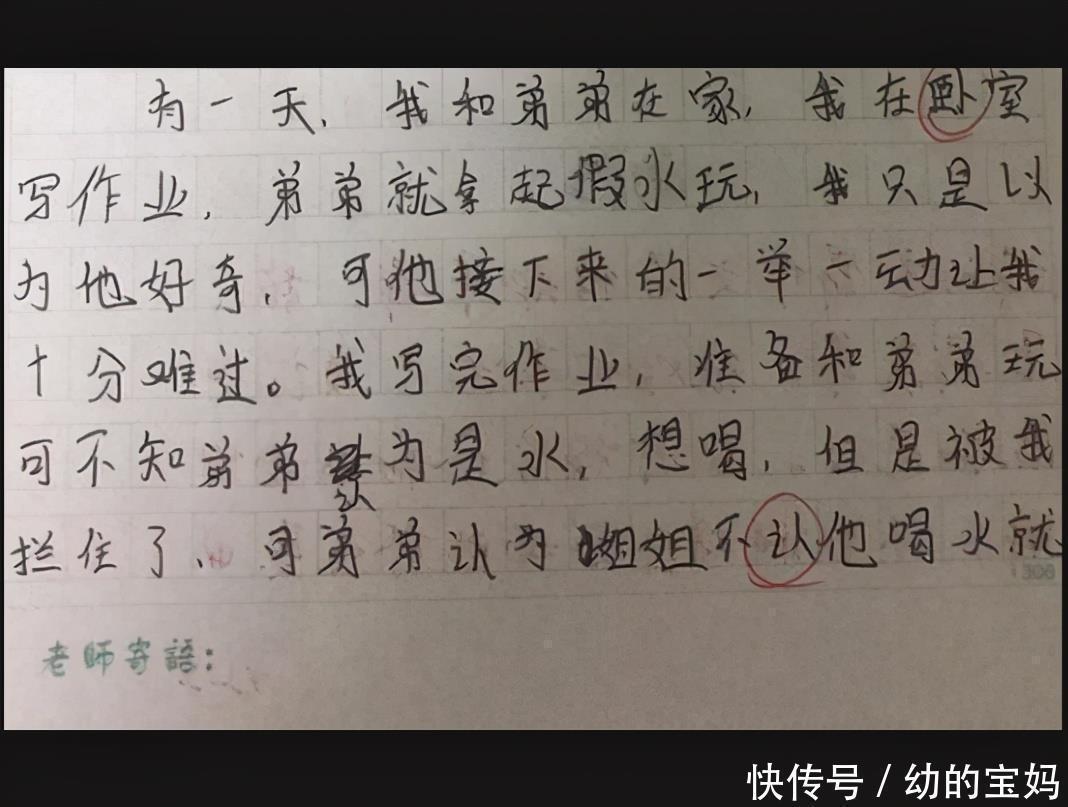 有一天，我和弟弟在家，我在卧室
写作业，弟弟就拿起假水玩，我只是以
为他好奇，可他接下来的一举一动让我
十分难过。我写完作业，准备和弟弟玩
可不知弟弟认为是水，想喝，但是被我
拦住了、可弟弟认为姐姐不认他喝水就
老師寄語：
快传号 / 幼的宝妈